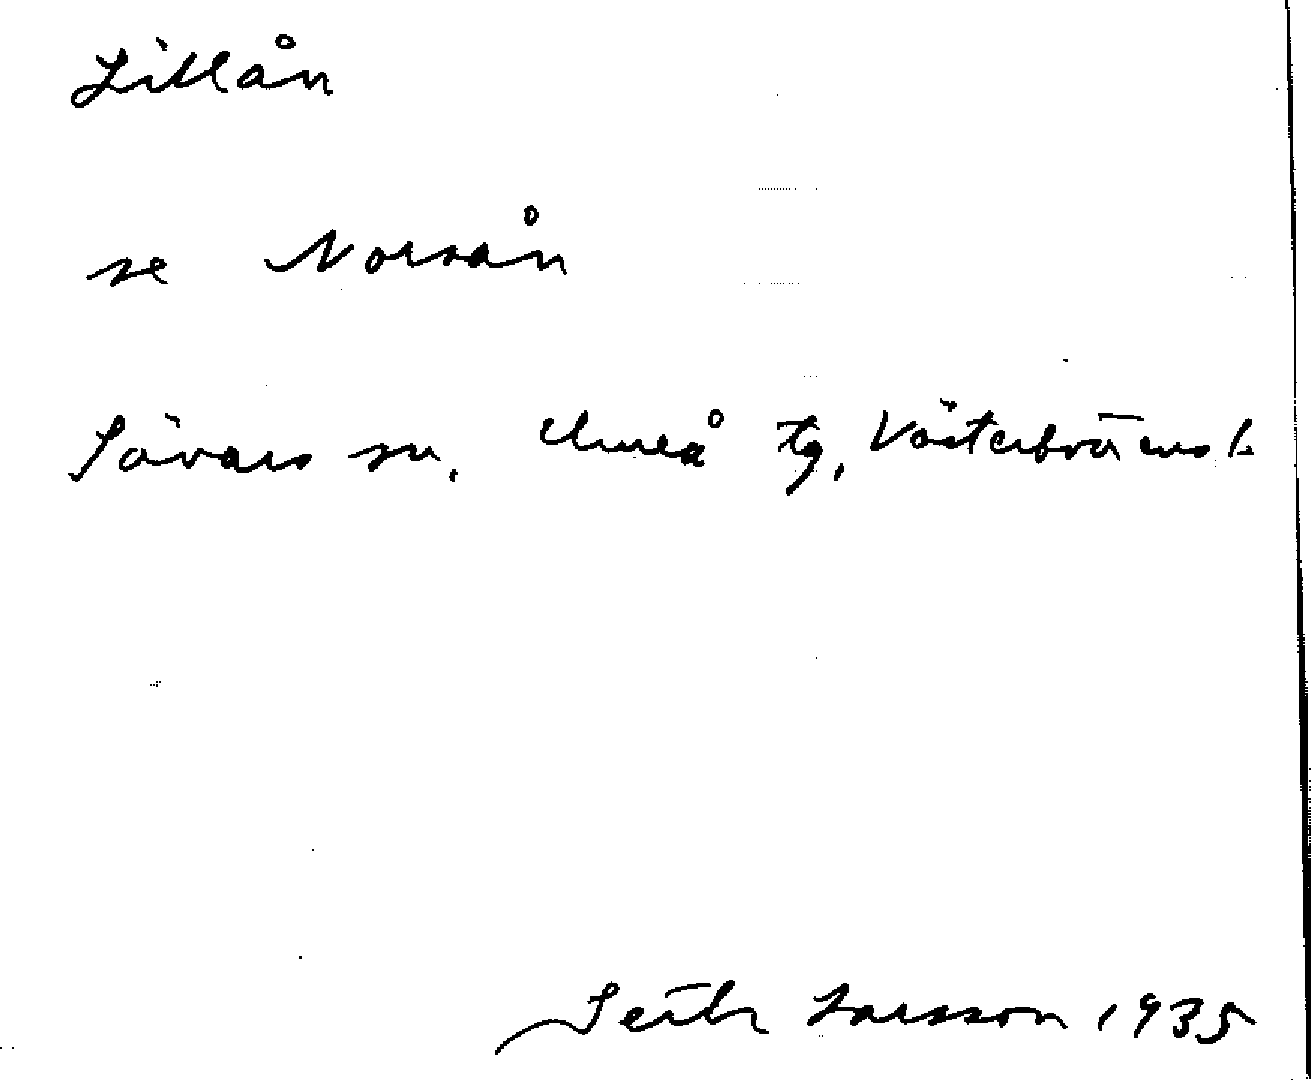 Lillån
se Norsån
Sävars sn. Umeå tg, Västerbottens l.
Larsson 1935